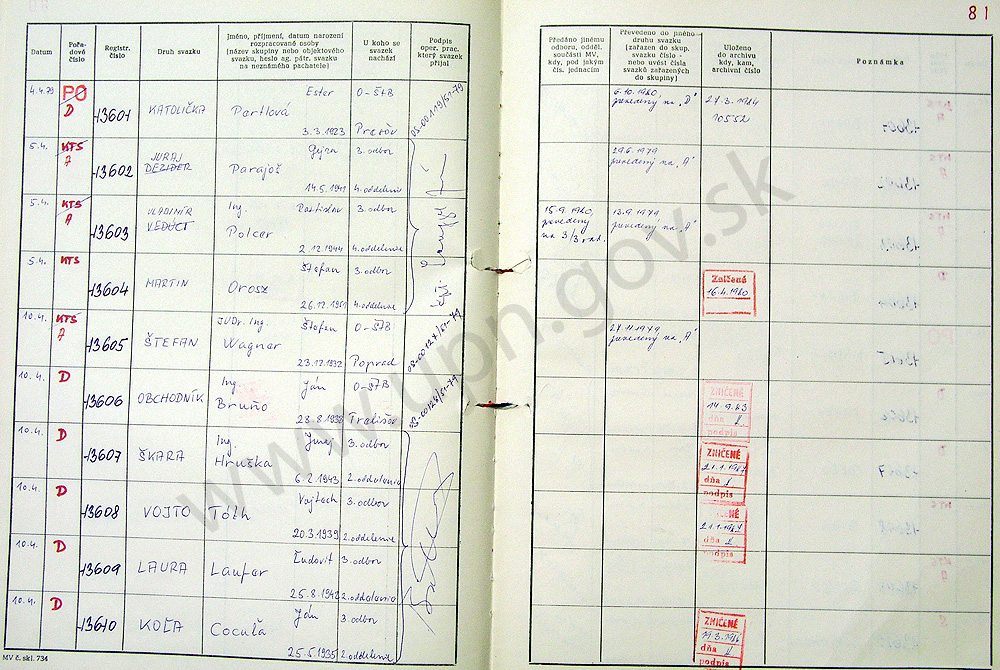 81
Datum
Pořadové číslo
Registr. číslo
Druh svazku
Jméno, příjmení, datum narození rozpracované osoby (název skupiny nebo objektového svazku, heslo ag. pátr. svazku na neznámého pachatele)
U koho se svazek nachází
Podpis oper. prac. který svazek přijal
Předáno jinému odboru, odděl. součásti MV, kdy, pod jakým čís. jednacím
Převedeno do jiného druhu svazku (zařazen do skup. svazku číslo - nebo uvést čísla svazků zařazených do skupiny)
Uloženo do archivu kdy, kam, archivní číslo
Poznámka
4.4.79 PO D 13601 KATOLIČKA Ester Pertlová 3.3.1923 O-ŠtB Prešov
6.10.1980 prevedený na "D" 27.3.1984 10552
5.4. KTS A 13602 JURAJ DEZIDER Parajoš 14.5.1941 3. odbor 4. oddelenie
29.6.1979 prevedený na "A"
5.4. KTS A 13603 VLADIMÍR VEDÚCI Ing. Rastislav Polcer 2.12.1944 3. odbor 4. oddelenie
15.9.1980, prevedený 13.9.1979 prevedený na "A"
5.4. KTS 13604 MARTIN Štefan Orosz 3. odbor 4. oddelenie
Zničené 16.4.1980
10.4. KTS A 13605 ŠTEFAN JUDr. Ing. Štefan Wagner 23.12.1932 O-ŠTB Poprad
27.11.1979 prevedený na "A"
10.4. D 13606 OBCHODNÍK Ing. Ján Bruňo O-ŠTB
ZNIČENÉ dňa podpis
10.4. D 13607 ŠKARA Ing. Juraj Hruška 6.2.1943 3. odbor 2. oddelenie
ZNIČENÉ dňa podpis
10.4. D 13608 VOJTO Vojtech Tóth 20.3.1939 3. odbor 2. oddelenie
dňa podpis
10.4. D 13609 LAURA Ľudovít Laufer 25.8.1942 3. odbor 2. oddelenie
10.4. D 13610 KOĽA Ján Cocuľa 25.5.1935 3. odbor 2. oddelenie
ZNIČENÉ dňa podpis
MV č. skl. 734
www.upn.gov.sk